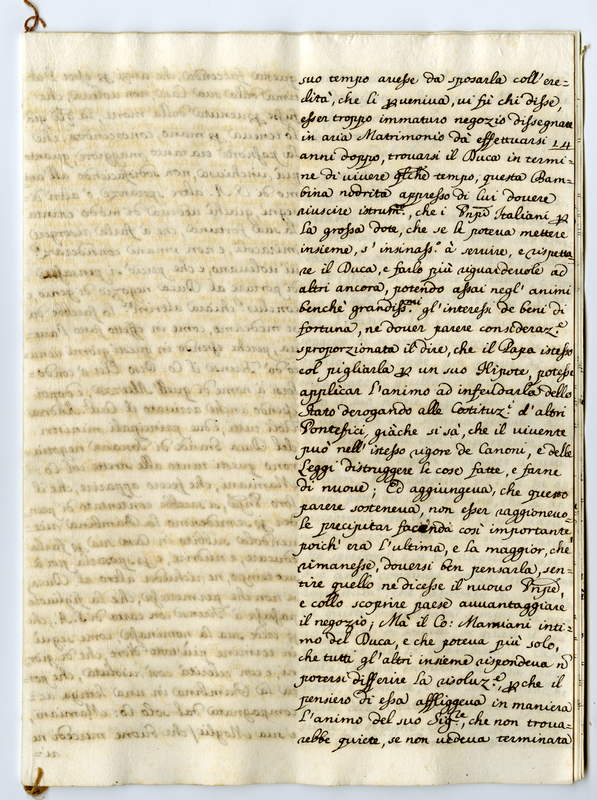 suo tempo avesse da sposarla coll' ere=
dità, che li ꝑveniva, vi fù chi disse,
esser troppo immaturo negozio dissegnare
in aria Matrimonio da effettuarsi 14
anni doppo, trovarsi il Duca in termi=
ne di vivere qlche tempo, questa Bam=
bina nodrita appresso di lui dovere
riuscire istrum.to, che i Pnpi Italiani ꝑ
la grossa dote, che se le poteva mettere
insieme, s' insinass.o à servire, e rispetta=
re il Duca, e farlo più riguardevole ad
altri ancora, potendo assai negl' animi
benchè grandiss.mi gl' interessi de beni di
fortuna, ne dover parere consideraz.e
sproporzionata il dire, che il Papa istesso
col pigliarla ꝑ un suo Nipote, potesse
applicar l'animo ad infeudarla dello
Stato derogando alle Costituz.i d' altri
Pontefici, giàche si sà, che il vivente
può nell' istesso vigore de Canoni, e delle
Leggi distruggere le cose fatte, e farne
di nuove; Ed aggiungeva, che questo
parere sosteneva, non esser raggionevo=
le precipitar facenda così importante,
poich' era l'ultima, e la maggior, che
rimanesse, doversi ben pensarla, sen=
tire quello ne dicesse il nuovo Pnpe,
e collo scoprire paese avvantaggiare
il negozio; Mà il Co: Mamiani inti=
mo del Duca, e che poteva più solo,
che tutti gl' altri insieme rispondeva nō
potersi differire la risoluz.e, ꝑche il
pensiero di essa affliggeva in maniera
l'animo del suo Sig.re, che non trova=
rebbe quiete, se non vedeva terminata